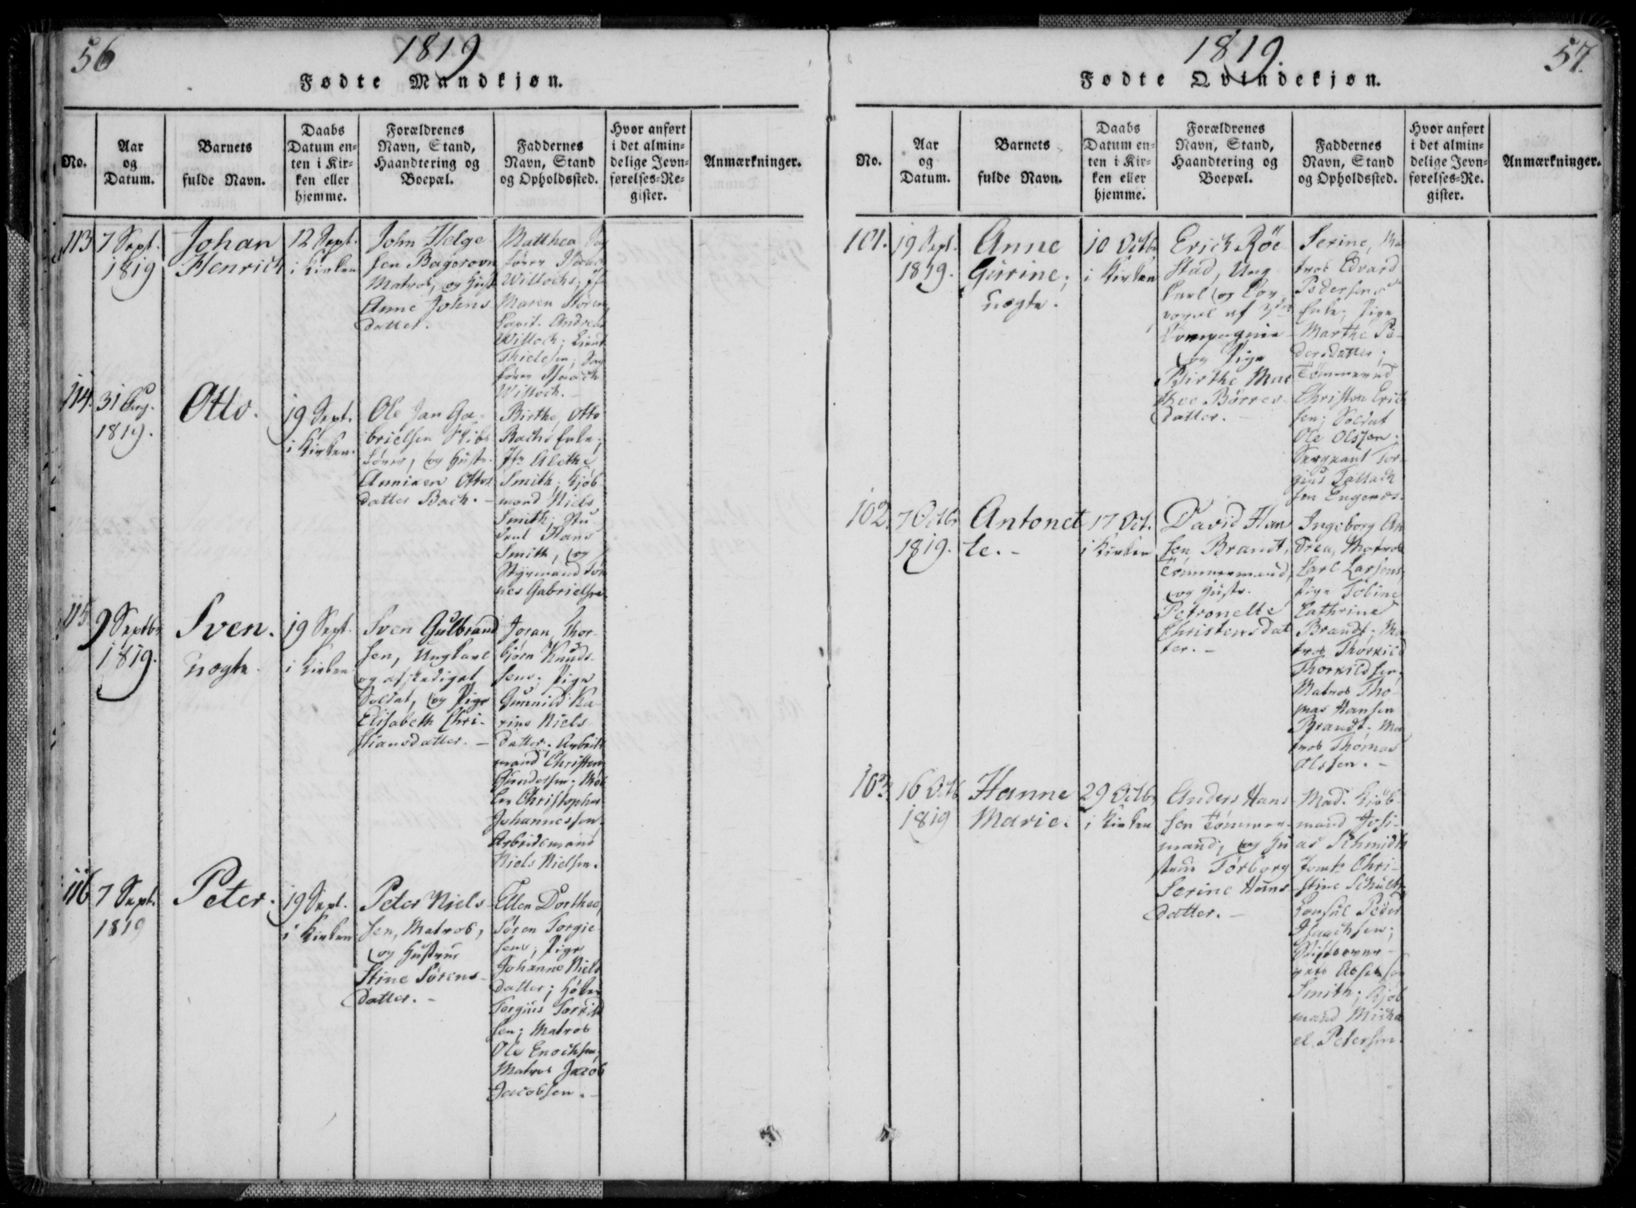 56
1819
Fødte Mandkjøn.
No.
Aar
og
Datum.
Barnets
fulde Navn.
Daabs
Datum en-
ten i Kir-
ken eller
hjemme.
Forældrenes
Navn, Stand,
Haandtering og
Boepæl.
Faddernes
Navn, Stand
og Opholdssted.
Hvor anført
i det almin-
delige Jevn-
førelses-Re-
gister.
Anmærkninger.
113
7 Sept.
1819
Johan
Henrich
12 Sept.
i Kirken
John Helge
sen
Matros, og Hust.
Anne Johns
datter.
Matthea
Maren
Andreas
Wittoch; Lieut.
114.
31 Aug.
1819.
Otto.
19 Sept.
i Kirken.
Ole Jan Ga-
brielsen Skibs
fører, og Hustr.
Otto
datter Bach.
Birthe, Otto
Bachs Enke;
Jfr Alethe
Smith; Kjøb-
mand Niels
Smith; Stu
dent Hans
Smith, og
Styrmand
Gabrielsen.
115.
9 Septbr
1819.
Sven.
uægte.
19 Sept.
i Kirken
Sven Gulbrand
sen, Ungkarl
og afskediget
Soldat, og Pige
Elisabeth Chri-
stiansdatter. —
Joran, Thor-
bjørn Knuds-
sens; Pige
Gunnild Ka-
rine Niels-
datter. Arbeids
mand Christen
Christopher
Johannessen.
Arbeidsmand
Niels Nielsen.
116
7 Sept.
1819
Peter.
19 Sept.
i Kirken
Peter Niels
sen, Matros,
og Hustrue
Stine Sørens-
datter. –
Ellen Dorthea,
Søren Torgie
sens; Pige
Johanne Niels
datter;
Torgius Torkild
sen; Matros
Ole Enochsen,
Matros Jacob
Jacobsen. –
57.
1819.
Fødte Qvindekjøn.
No.
Aar
og
Datum.
Barnets
fulde Navn.
Daabs
Datum en-
ten i Kir-
ken eller
hjemme.
Forældrenes
Navn, Stand,
Haandtering og
Boepæl.
Faddernes
Navn, Stand
og Opholdssted.
Hvor anført
i det almin-
delige Jevn-
førelses-Re-
gister.
Anmærkninger.
101.
19 Sept.
1819.
Anne
Gurine;
uægte.
10 Octbr
i Kirken
Erich Röe
stad, Ung
karl og Cor
poral af
Compagnie
og Pige
Birthe Mar
Børres-
datter. —
Serine, Ma
tros Edvard
Pedersens
Enke; Pige
Marthe Pe-
dersdatter;
Tømmermd
Christen Erich
sen; Soldat
Ole Olssen;
Sergeant Tor
gius Tallach
sen
102.
7 Octbr
1819.
Antonet
te. –
17 Oct.
i Kirken
David Han
sen Brandt,
Tømmermand,
og Hustr.
Petronelle
Christensdat
ter. –
Ingeborg An
drea, Matros
Carl Larsens,
Pige Tobine
Cathrine
Brandt; Ma
tros Thorkild
Thorkildsen,
Matros Tho
mas Hansen
Brandt; Ma
tros Thomas
Olsen. –
103.
16 Octb
1819
Hanne
Marie.
29 Octbr
i Kirken
Anders Hans
sen Tømmer
mand, og Hu
strue Torborg
Serine Hans-
datter. –
Mad. Kjöb-
mand Tobi-
as Schmidt
Jomfr. Chri-
stine Schultz,
Consul Peder
Isaachsen;
Smith; Kjøb
mand Micha
el Petersen.